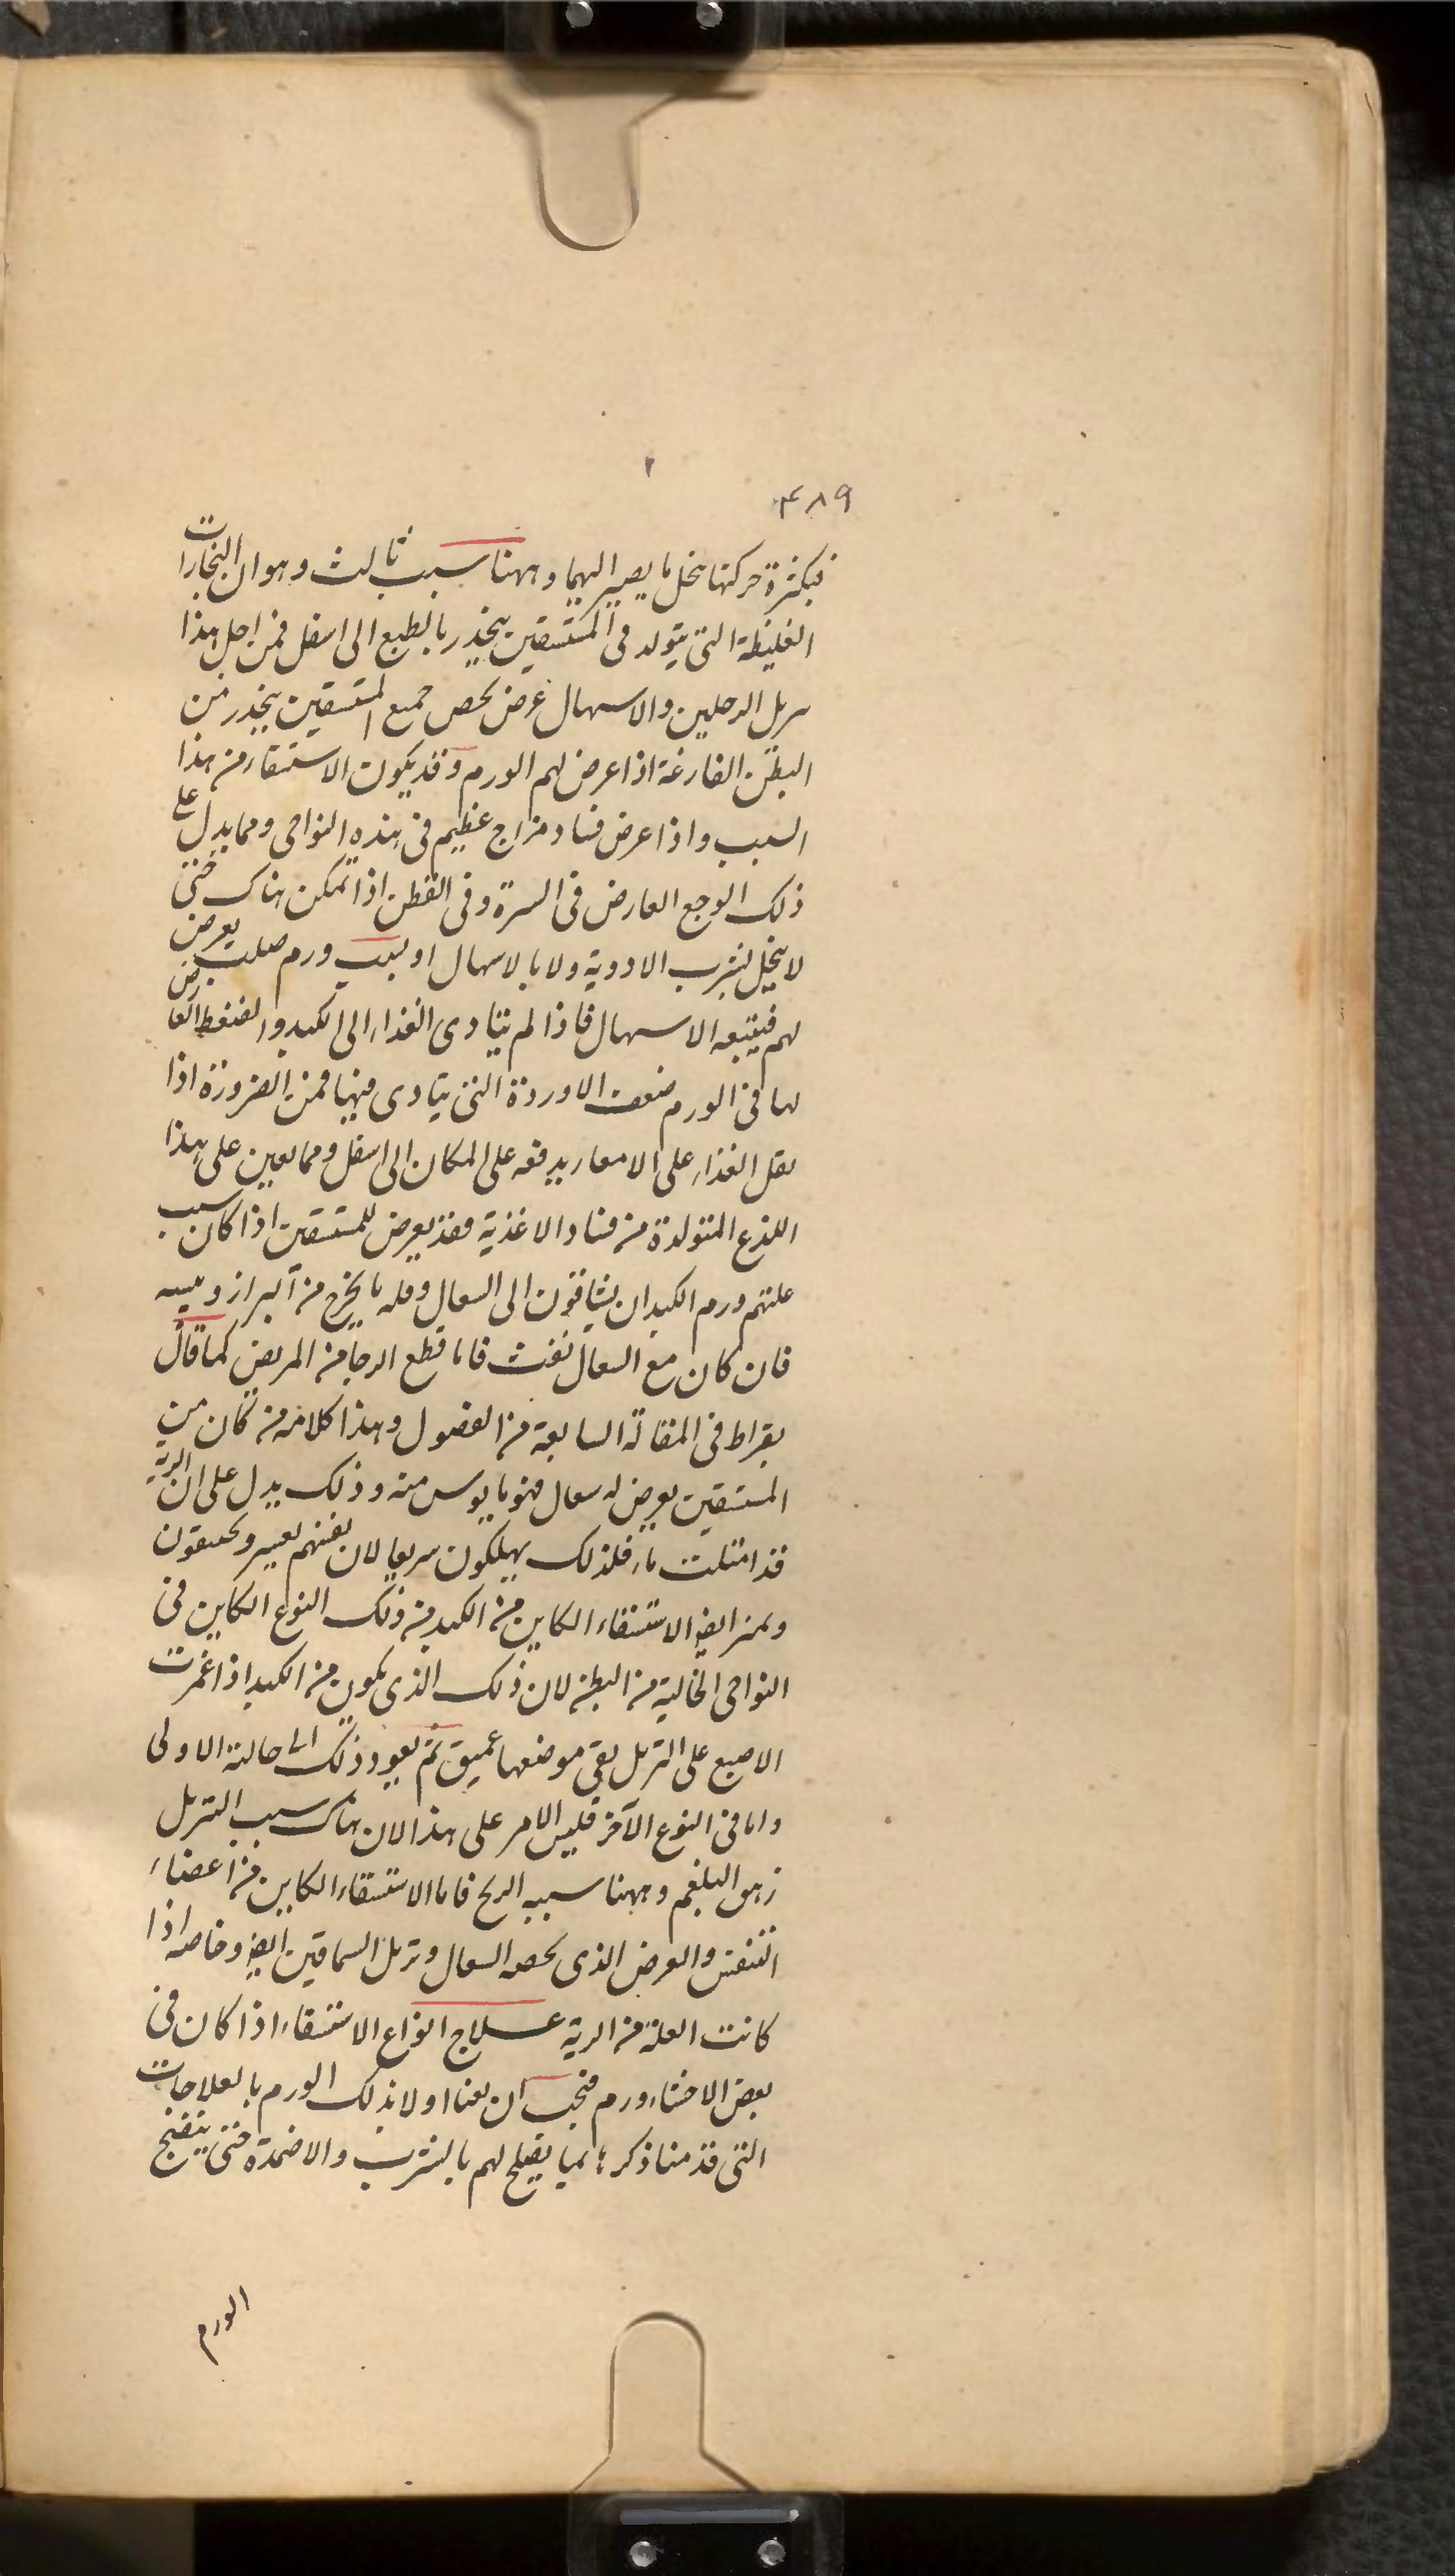 ۴۸۹
فبكثرة حركتها يخل ما يصير اليها وههنا سبب ثالث وهو ان البخارات
الغليظة التي يتولد في المستسقين ينحذر بالطبع الى اسفل فمن اجل هذا
يربل الرجلين والاسهال عرض يخص جميع المستسقين ينحذر من
البطن الفارغة اذا عرض لهم الورم وقد يكون الاستسقاء من هذا
السبب واذا عرض فساد مزاج عظيم في هذه النواحي ومما يدل على
ذلك الوجع العارض في السرة وفي القطن اذا تمكن هناك حتى
لا ينحل بشرب الادوية ولا بالاسهال او بسبب ورم صلب يعرض
لهم فيتبعه الاسهال فاذا لم يتادى الغذاء الى الكبد والضغط العارض
لها في الورم ضعف الاوردة التي يتادى فيها فمن الضرورة اذا
يقل الغذاء على الامعاء يدفعه على المكان الى اسفل ومما يعين على هذا
اللذع المتولدة من فساد الاغذية وقد يعرض للمستسقين اذا كان سبب
علتهم ورم الكبد ان يشتاقون الى السعال وقله ما يخرج من البراز ويبسه
فان كان مع السعال نفث فانا قطع الرجا من المريض كما قال
بقراط في المقالة السابعة من الفصول وهذا كلامه من كان من
المستسقين يعرض له سعال فهو مايوس منه وذلك يدل على ان الرية
قد امتلت ماء فلذلك يهلكون سريعا لان نفسهم يعسر ويختنقون
ويميز ايضا الاستسقاء الكاين من الكبد من ذلك النوع الكاين في
النواحي الخالية من البطن لان ذلك الذي يكون من الكبد اذا غمرت
الاصبع على التربل بقي موضعها عميق ثم يعود ذلك الى حالته الاولى
واما في النوع الآخر فليس الامر على هذا لان هناك سبب التربل
زهو البلغم وههنا سببه الريح فاما الاستسقاء الكاين من اعضاء
التنفس والعرض الذي يخصه السعال وتربل الساقين ايضا وخاصه اذا
كانت العلة من الرية علاج انواع الاستسقاء اذا كان في
بعض الاحشاء ورم فيجب ان يعنا اولا بذلك الورم بالعلاجات
التي قدمنا ذكرها بما يصلح لهم بالشرب والاضمدة حتى ينضج
الورم